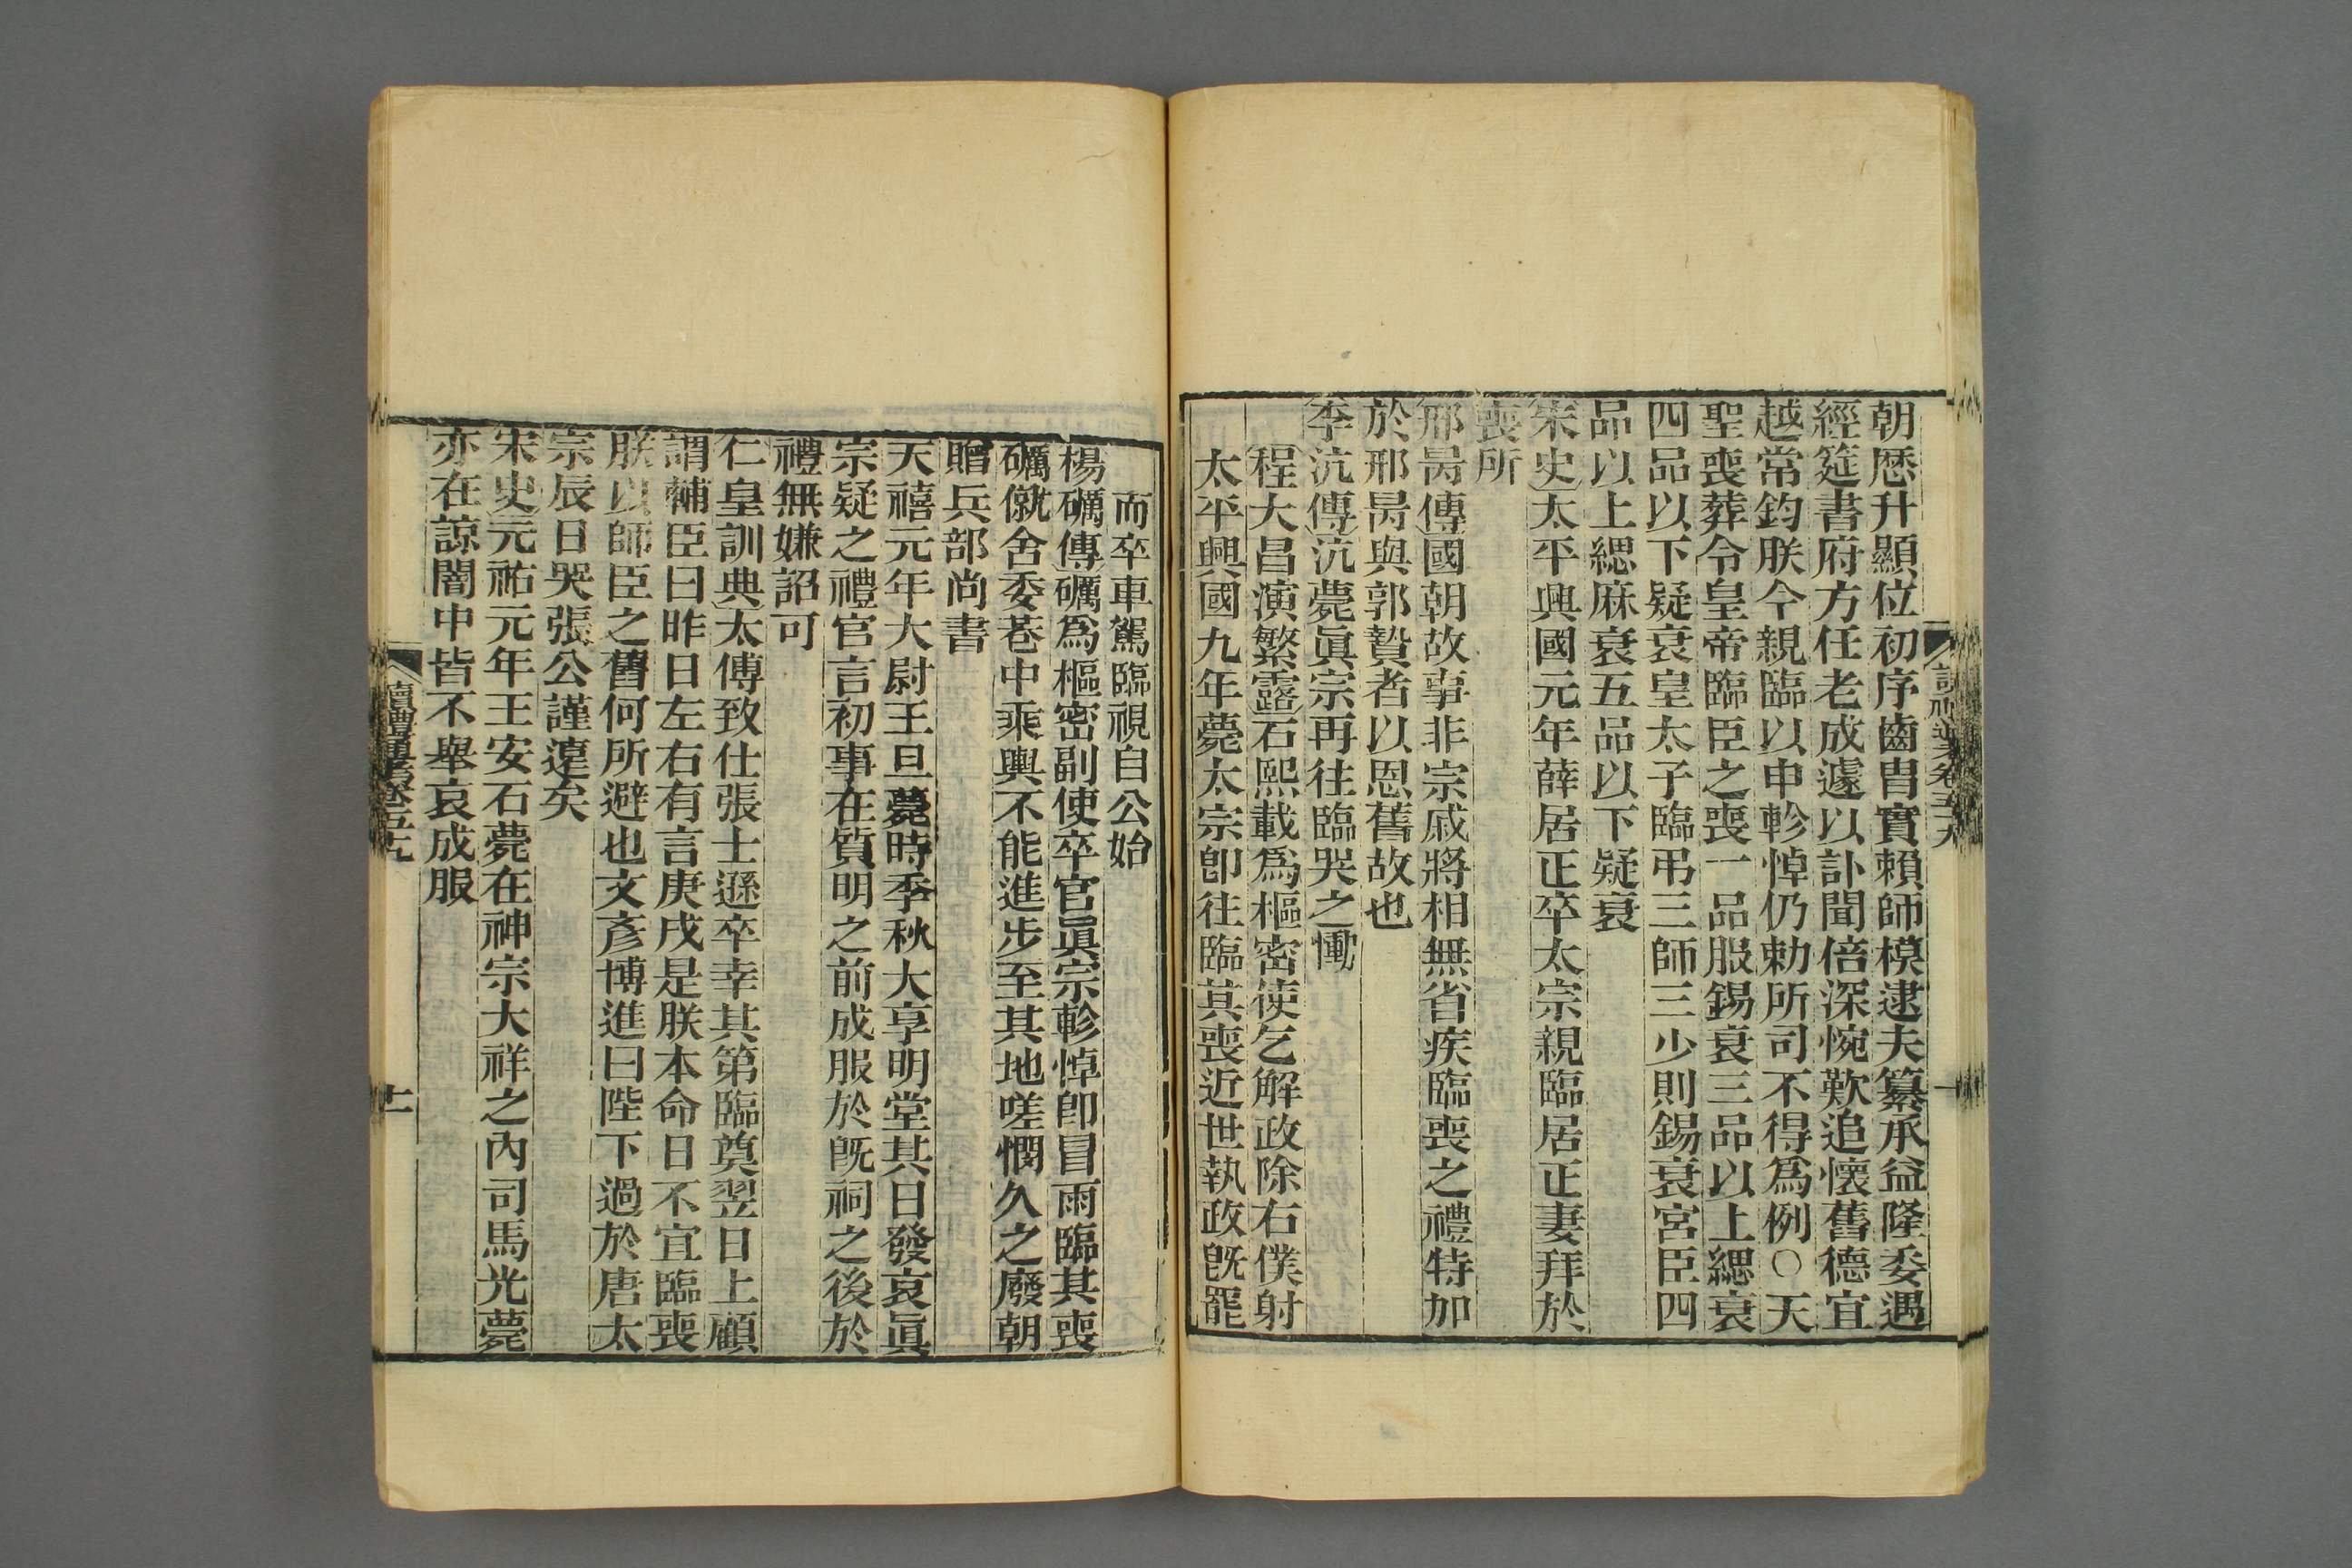 朝歴升顯位初序齒胄實賴師模逮夫纂承益隆委遇
經筵書府方任老成遽以訃聞倍深惋歎追懷舊德宜
越常鈞朕今親臨以申軫悼仍勅所司不得爲例○天
聖喪葬令皇帝臨臣之喪一品服錫衰三品以上緦衰
四品以下疑衰皇太子臨弔三師三少則錫衰宮臣四
品以上緦麻衰五品以下疑衰
宋史太平興國元年薛居正卒太宗親臨居正妻拜於
喪所
邢昺傳國朝故事非宗戚將相無省疾臨喪之禮特加
於邢昺與郭贄者以恩舊故也
李沆傳沆薨眞宗再往臨哭之慟
程大昌演繁露石熙載爲樞密使乞解政除右僕射
太平興國九年薨太宗卽往臨其喪近世執政旣罷
而卒車駕臨視自公始
楊礪傳礪爲樞密副使卒官眞宗軫悼卽冒雨臨其喪
礪僦舍委巷中乘輿不能進步至其地嗟憫久之廢朝
贈兵部尚書
天禧元年大尉王旦薨時季秋大享明堂其日發哀眞
宗疑之禮官言初事在質明之前成服於旣祠之後於
禮無嫌詔可
仁皇訓典太傅致仕張士遜卒幸其第臨奠翌日上顧
謂輔臣曰昨日左右有言庚戌是朕本命日不宜臨喪
朕以師臣之舊何所避也文彥博進曰陛下過於唐太
宗辰日哭張公謹遠矣
宋史元祐元年王安石薨在神宗大祥之內司馬光薨
亦在諒闇中皆不舉哀成服
讀禮通考卷五九
十一